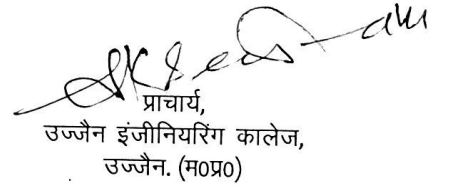 प्राचार्य,
उज्जैन इंजीनियरिंग कालेज,
उज्जैन. (म०प्र०)